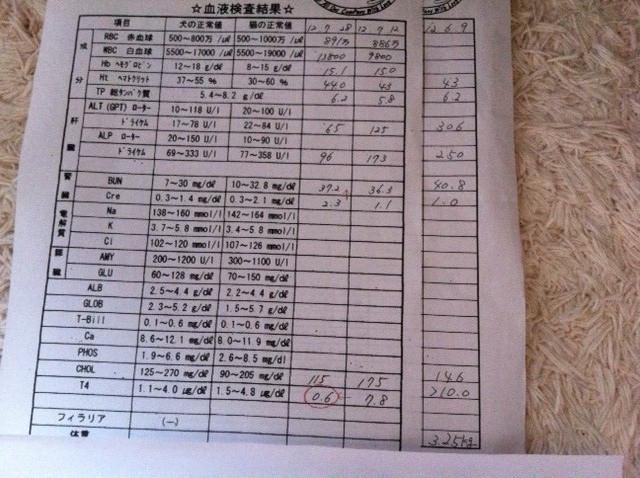 ☆血液検査結果☆
項目 犬の正常値 猫の正常値 12.7.28 12.7.12 12.6.9
成分 RBC 赤血球 500~800万 /㎕ 500~1000万 /㎕ 891万 886万
WBC 白血球 5500~17000 /㎕ 5500~19000 /㎕ 13800 9800
Hb ヘモグロビン 12~18 g/dℓ 8~15 g/dℓ 15.1 15.0
Ht ヘマトクリット 37~55 % 30~60 % 44.0 43 43
TP 総タンパク質 5.4~8.2 g/dℓ 6.2 5.8 6.2
肝臓 ALT (GPT) ローター 10~118 U/l 20~100 U/l
ドライケム 17~78 U/l 22~84 U/l 65 125 306
ALP ローター 20~150 U/l 10~90 U/l
ドライケム 69~333 U/l 77~358 U/l 96 173 250
腎臓 BUN 7~30 mg/dℓ 10~32.8 mg/dℓ 37.2 36.3 40.8
Cre 0.3~1.4 mg/dℓ 0.3~2.1 mg/dℓ 2.3 1.1 1.0
電解質 Na 138~160 mmol/l 142~164 mmol/l
K 3.7~5.8 mmol/l 3.4~5.8 mmol/l
Cl 102~120 mmol/l 107~126 mmol/l
膵臓 AMY 200~1200 U/l 300~1100 U/l
GLU 60~128 mg/dℓ 70~150 mg/dℓ
ALB 2.5~4.4 g/dℓ 2.2~4.4 g/dℓ
GLOB 2.3~5.2 g/dℓ 1.5~5.7 g/dℓ
T-Bill 0.1~0.6 mg/dℓ 0.1~0.6 mg/dℓ
Ca 8.6~12.1 mg/dℓ 8.0~11.9 mg/dℓ
PHOS 1.9~6.6 mg/dℓ 2.6~8.5 mg/dl
CHOL 125~270 mg/dℓ 90~205 mg/dℓ 115 175 146
T4 1.1~4.0 ㎍/dℓ 1.5~4.8 ㎍/dℓ 0.6 7.8 >10.0
フィラリア (-)
体重 3.25kg